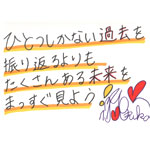 ひとつしかない過去を
振り返るよりも
たくさんある未来を
まっすぐ見よう